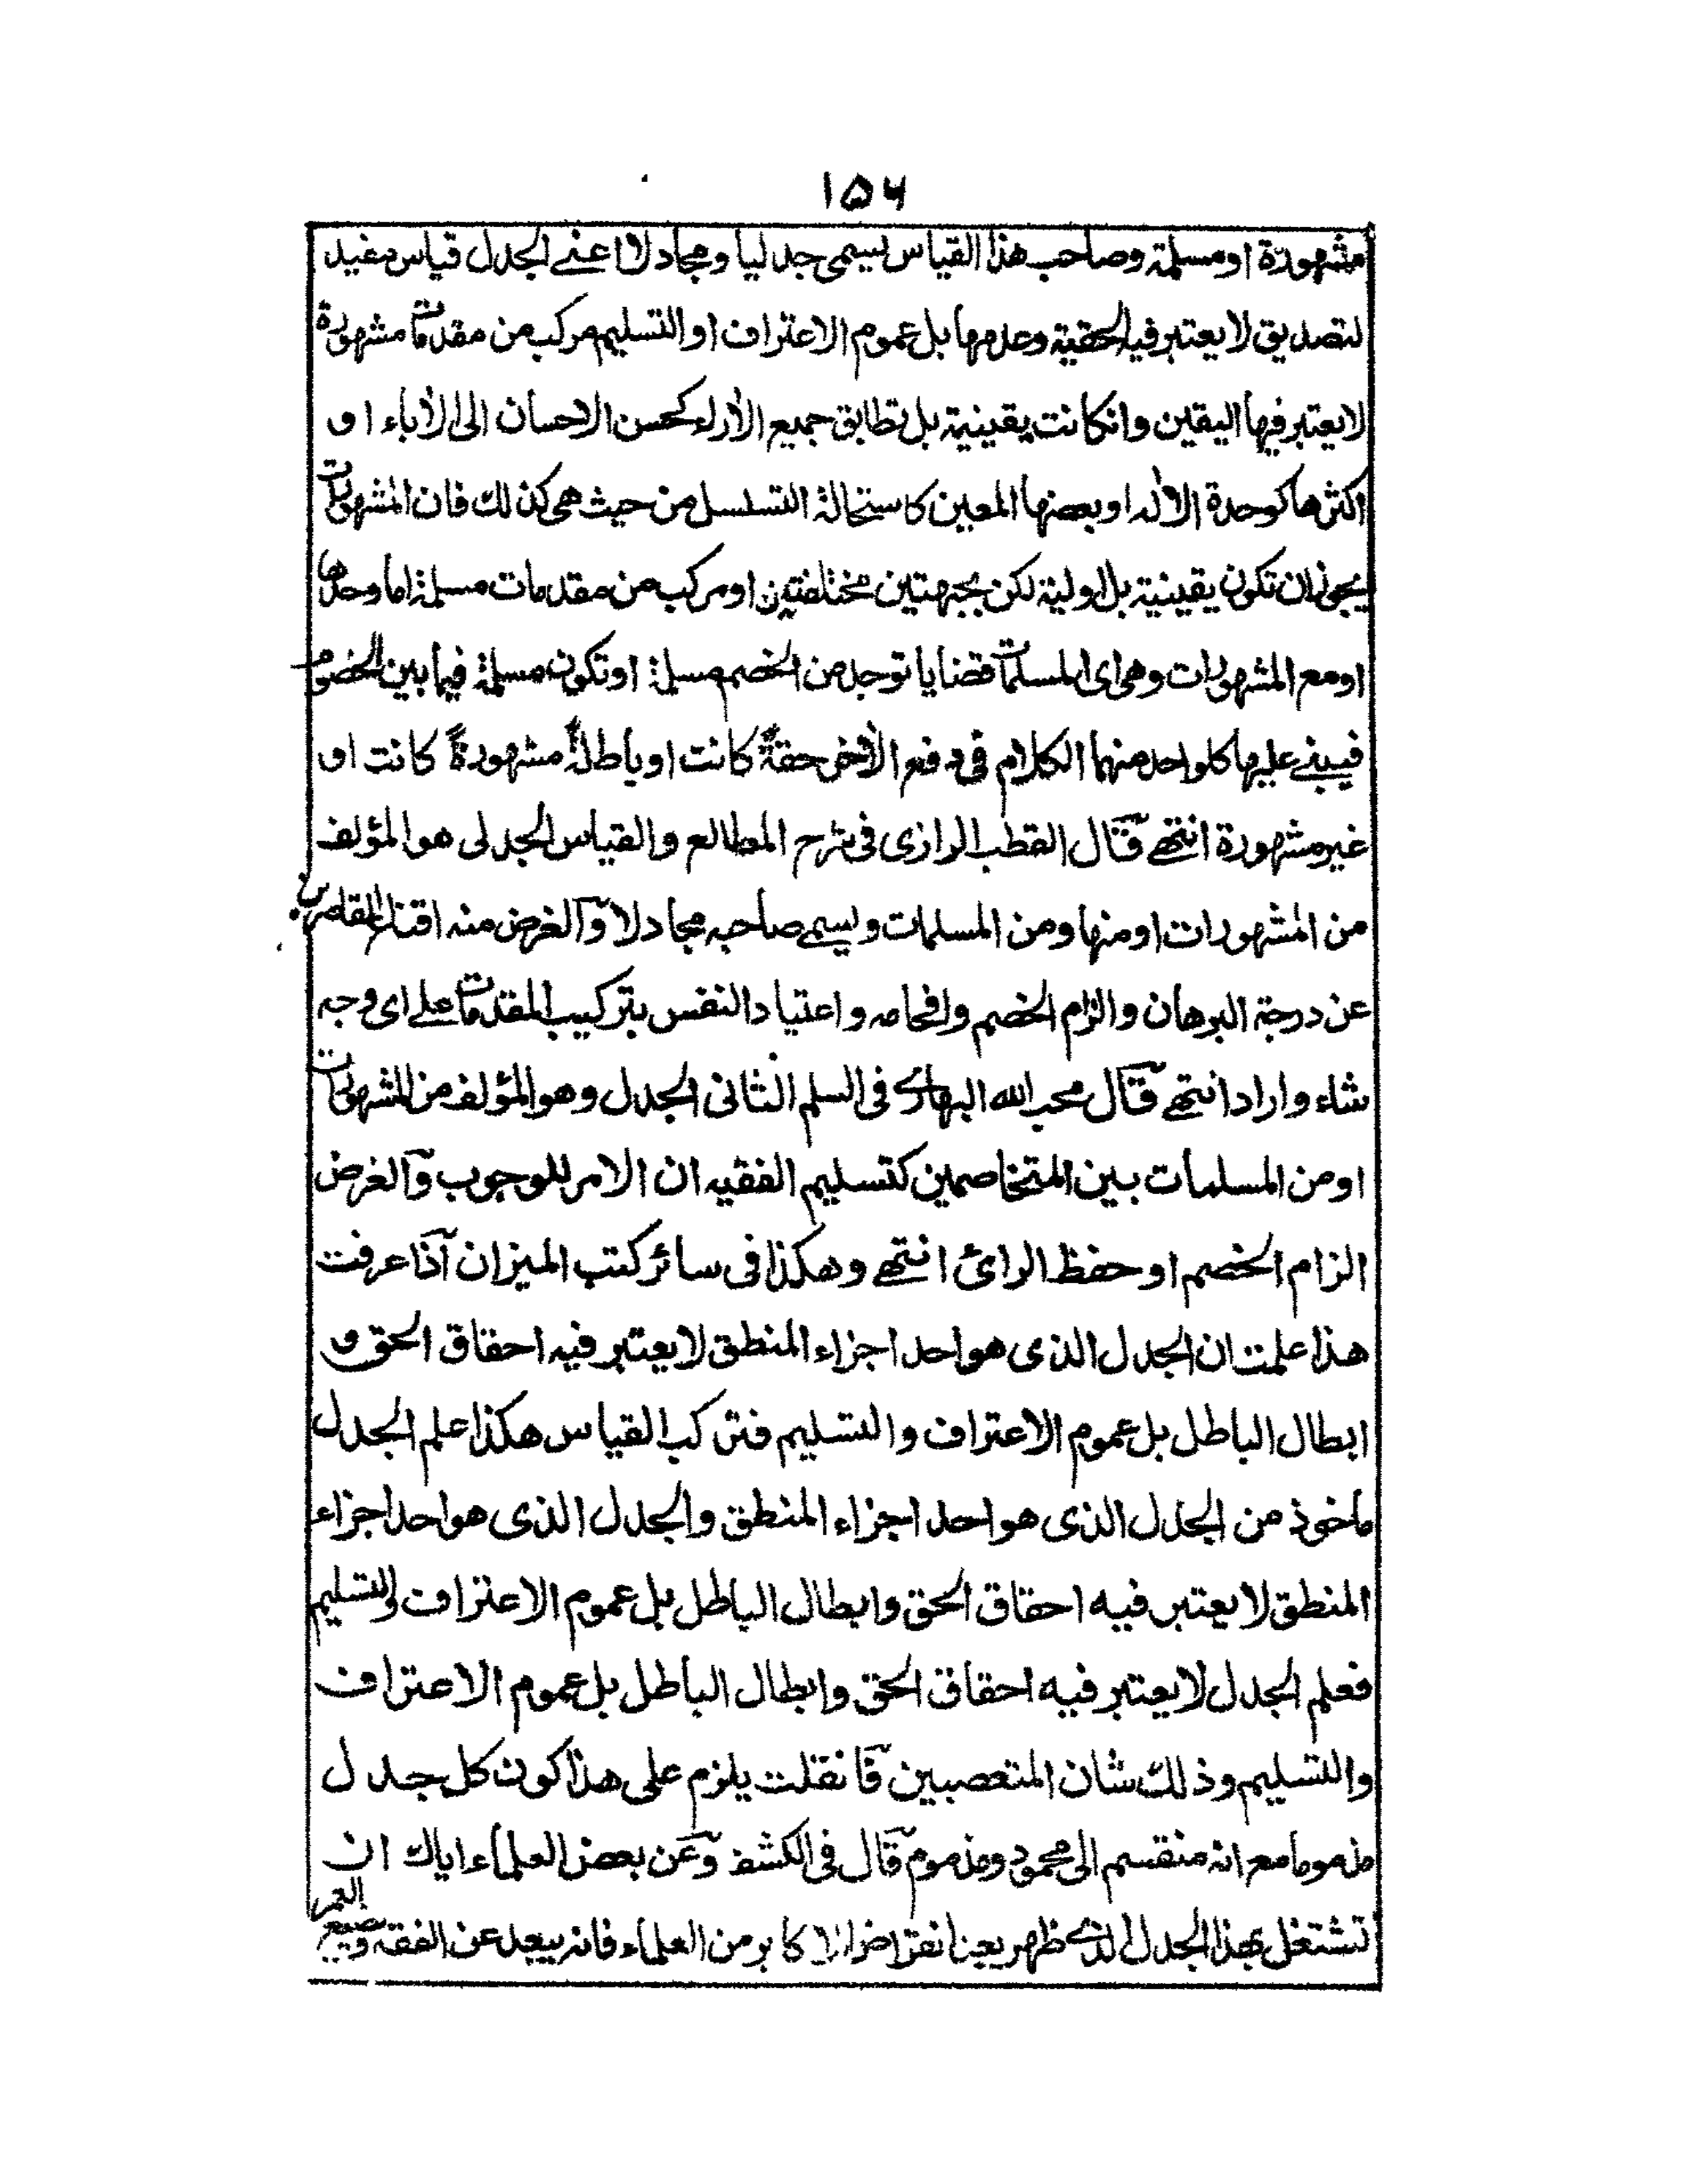 ١٥٦
مشهورة او مسلمة وصاحب هذا القياس يسمى جدليا ومجادلا اعنے الجدل قياس مفيد
لتصديق لا يعتبر فيه الحقية وعدمها بل عموم الاعتراف او التسليم مركب من مقدمات مشهورة
لا يعتبر فيها اليقين وانكانت يقينية بل تطابق جميع الآراء كحسن الاحسان الى الآباء او
اكثرها كوحدة الاله او بعضها المعين كاستحالة التسلسل من حيث هى كذلك فان المشهورات
يجوز ان تكون يقينية بل اولية لكن بجهتين مختلفتين او مركب من مقدمات مسلمة اما وحدها
او مع المشهورات وهى اى المسلمات قضايا توجد من الخصم مسلمة او تكون مسلمة فيما بين الخصوم
فيبنے عليها كلواحد منهما الكلام فى دفع الآخر حقةً كانت او باطلةً مشهورةً كانت او
غير مشهورة انتهے قال القطب الرازى فى شرح المطالع والقياس الجدلى هو المؤلف
من المشهورات او منها ومن المسلمات ويسمے صاحبه مجادلا والغرض منه اقناع القاصرين
عن درجة البرهان والزام الخصم وافحامه واعتياد النفس بتركيب المقدمات علے اى وجه
شاء واراد انتهے قال محب الله البهارے فى السلم الثانى الجدل وهو المؤلف من المشهورات
او من المسلمات بين المتخاصمين كتسليم الفقيه ان الامر للوجوب والغرض
الزام الخصم او حفظ الرائ انتهے وهكذا فى سائر كتب الميزان اذا عرفت
هذا علمت ان الجدل الذى هو احد اجزاء المنطق لا يعتبر فيه احقاق الحق و
ابطال الباطل بل عموم الاعتراف والتسليم فتركب القياس هكذا علم الجدل
ماخوذ من الجدل الذى هو احد اجزاء المنطق والجدل الذى هو احد اجزاء
المنطق لا يعتبر فيه احقاق الحق وابطال الباطل بل عموم الاعتراف والتسليم
فعلم الجدل لا يعتبر فيه احقاق الحق وابطال الباطل بل عموم الاعتراف
والتسليم وذلك شان المتعصبين فانقلت يلزم على هذا كون كل جدل
مذموما مع انه منقسم الى محمود ومذموم قال فى الكشف وعن بعض العلماء اياك ان
تشتغل بهذا الجدل الذے ظهر بعد انقراض الاكابر من العلماء فانه يبعد عن الفقه ويضيع العمر